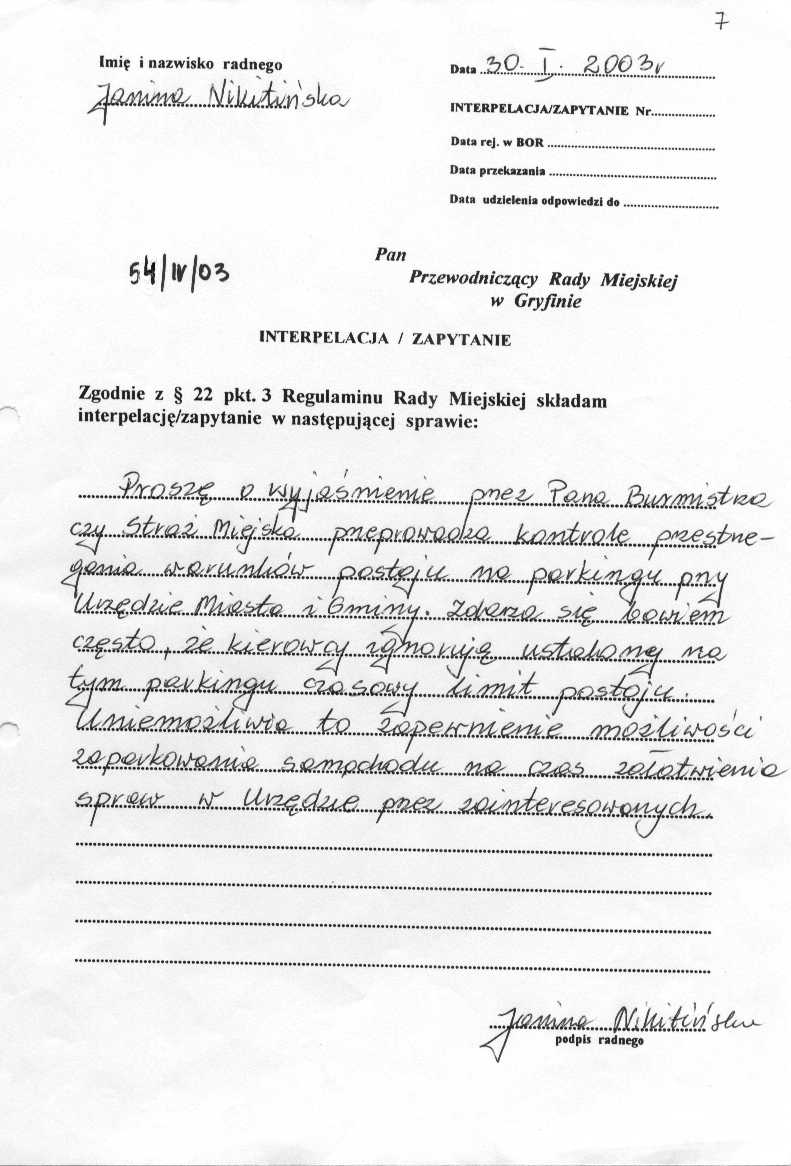 7
Imię i nazwisko radnego
Janina Nikitińska
Data 30. I. 2003r
INTERPELACJA/ZAPYTANIE Nr
Data rej. w BOR
Data przekazania
Data udzielenia odpowiedzi do
54/IV/03
Pan
Przewodniczący Rady Miejskiej
w Gryfinie
INTERPELACJA / ZAPYTANIE
Zgodnie z § 22 pkt. 3 Regulaminu Rady Miejskiej składam
interpelację/zapytanie w następującej sprawie:
Proszę o wyjaśnienie przez Pana Burmistrza
czy Straż Miejska przeprowadza kontrole przestrze-
gania warunków postoju na parkingu przy
Urzędzie Miasta i Gminy. Zdarza się bowiem
często, że kierowcy ignorują ustalony na
tym parkingu czasowy limit postoju.
Uniemożliwia to zapewnienie możliwości
zaparkowania samochodu na czas załatwienia
spraw w Urzędzie przez zainteresowanych.
Janina Nikitińska
podpis radnego